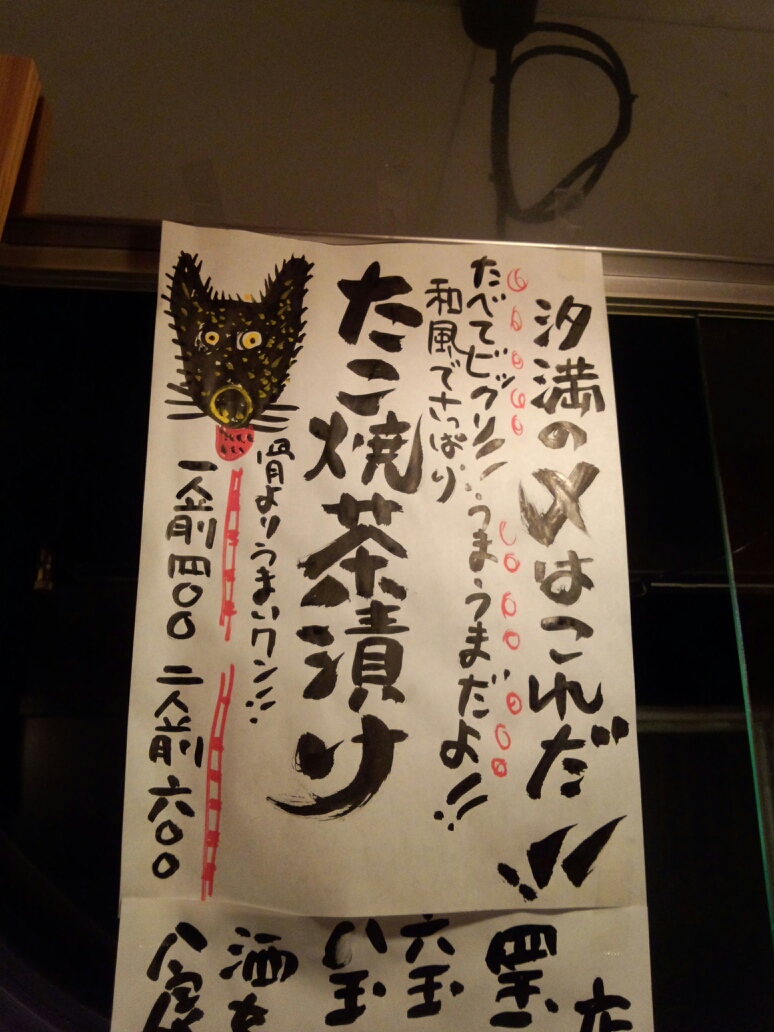 汐満の〆はこれだ!!
たべてビックリ!!…うまうまだよ!!
和風でさっぱり
たこ焼茶漬け
骨よりうまいワン!!
一人前四〇〇 二人前六〇〇
四玉
六玉
八玉
酒を